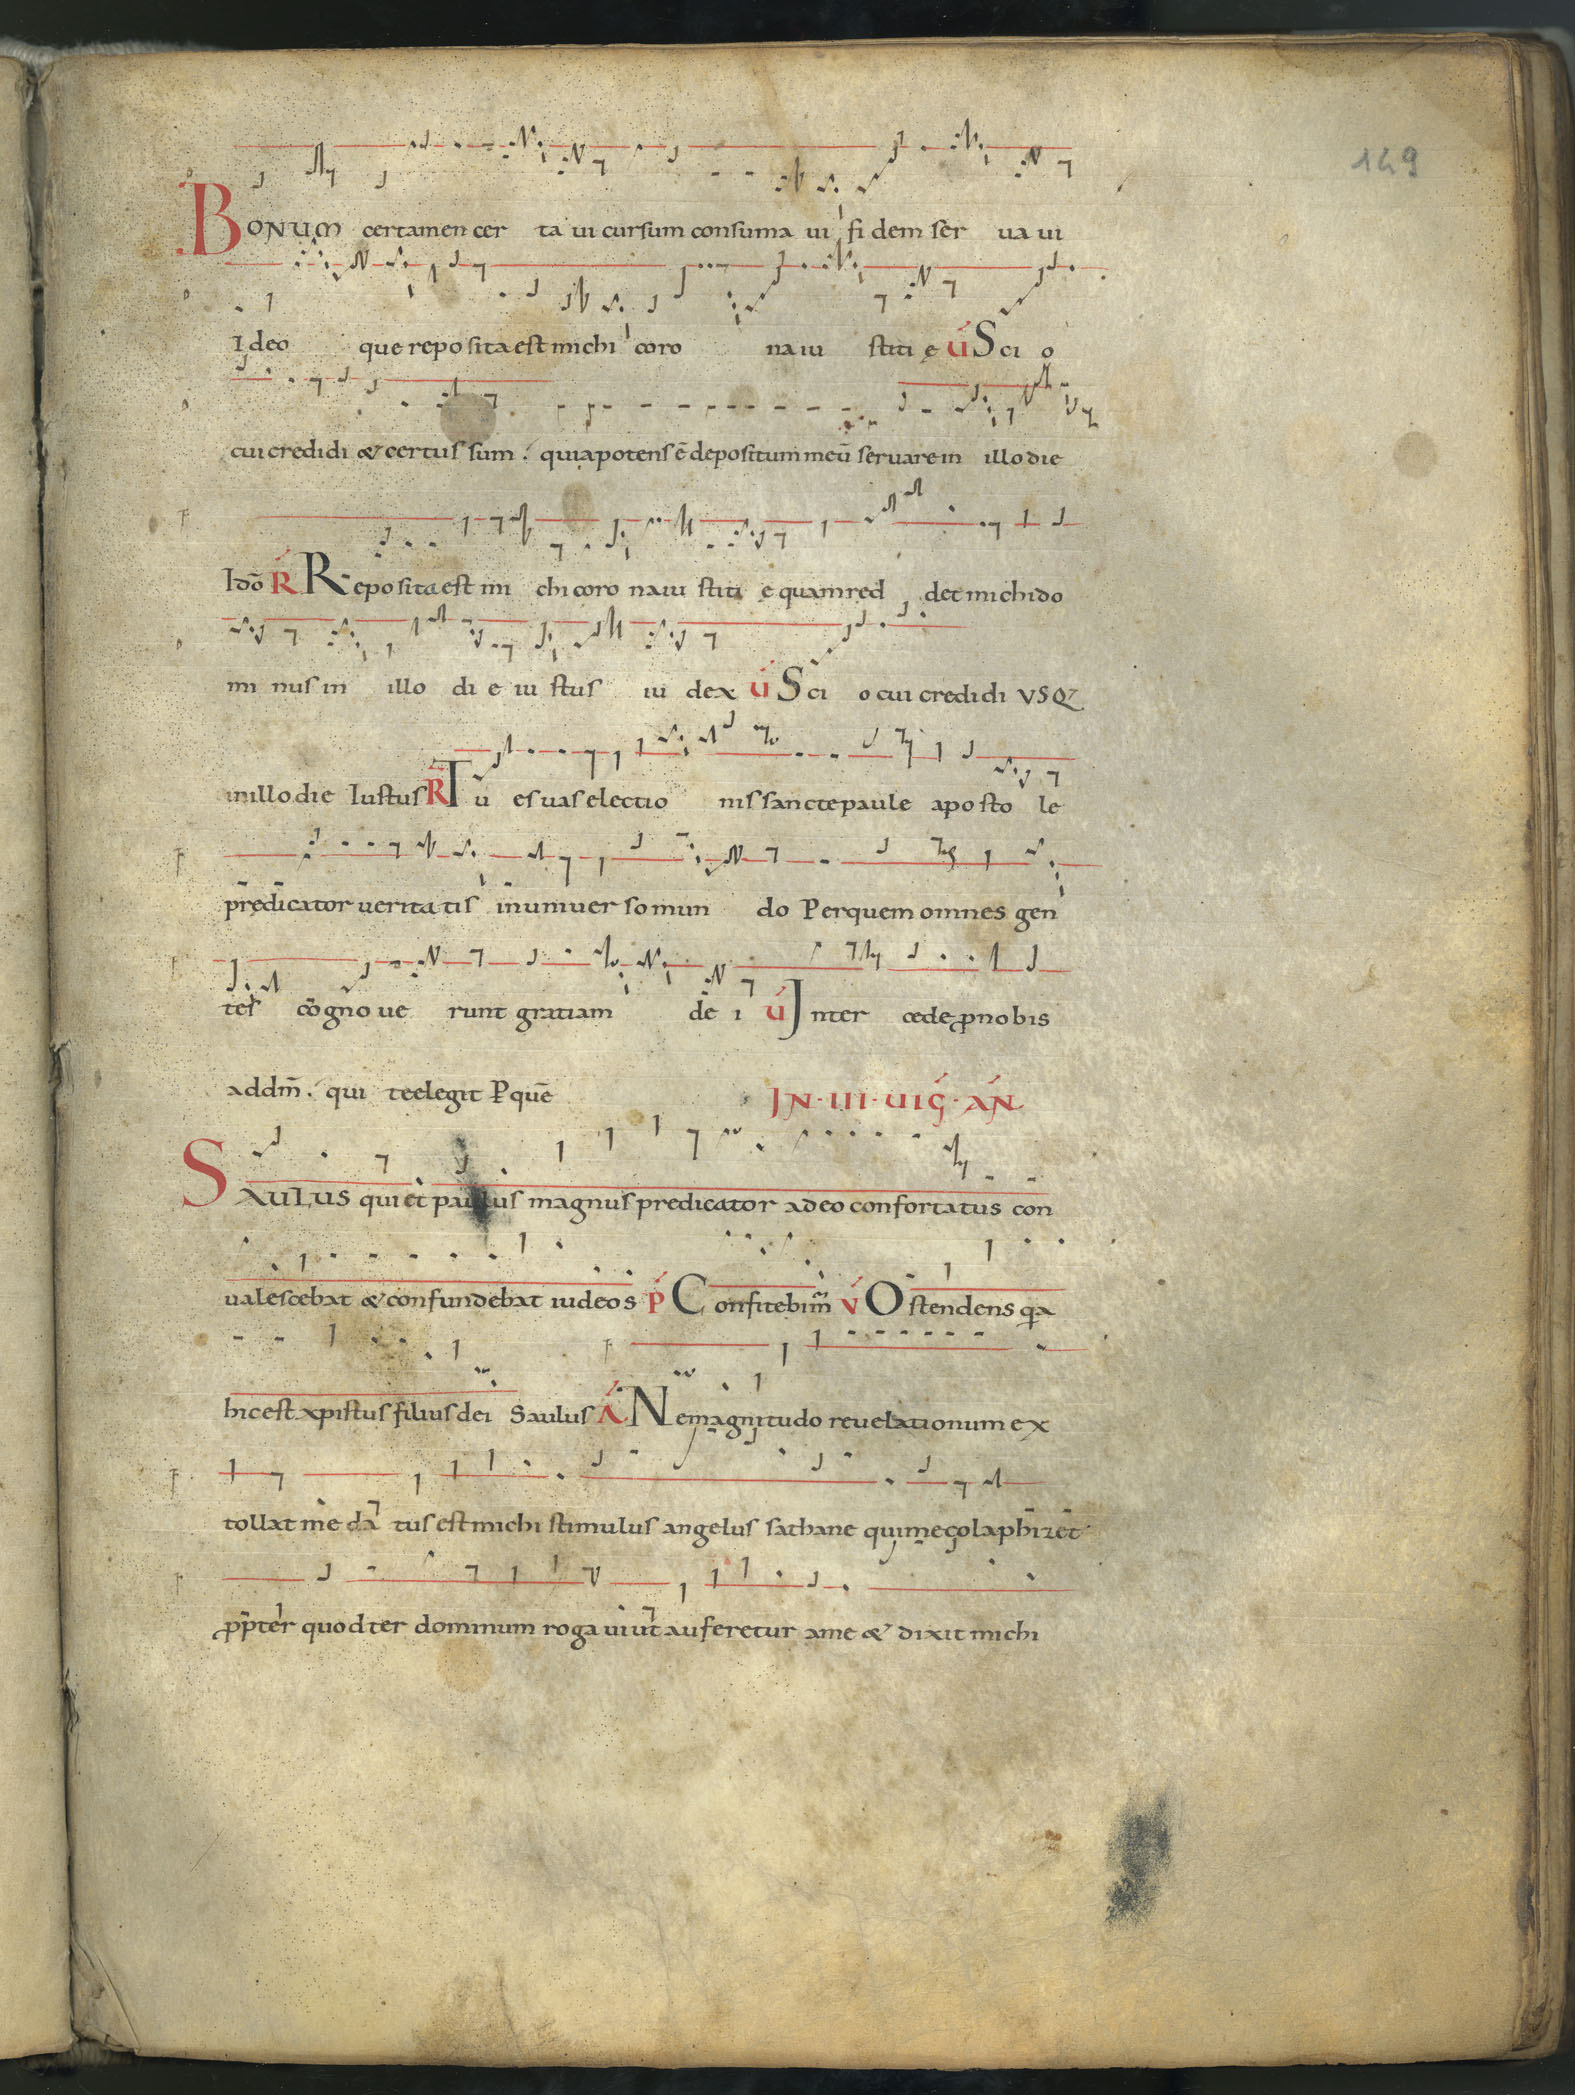 149
BONUM certamen cer ta ui cursum consuma ui fi dem ser ua ui
Ideo que reposita est michi coro na iu stiti ę V́ Sci o
cui credidi & certus sum. quia potens ē depositum meū seruare in illo die
Idō Ŕ Reposita est mi chi coro na iu stiti ę quam red det michi do
mi nus in illo di e iu stus iu dex V́ Sci o cui credidi VSQ3
in illo die Iustus Ŕ Tu es uas electio nis sancte paule aposto le
prędicator ueritatis in uniuer so mun do Per quem omnes gen
tes cogno ue runt gratiam de i V́ Inter cede ꝓ nobis
ad dm̄. qui te elegit P quē
IN·III·UIG̃·AÑ
SAULUS qui et paulus magnus predicator a deo confortatus con
ualescebat & confundebat iudeos P Confitebim̄ V́ Ostendens qa
hic est xpistus filius dei Saulus Á Ne magnitudo reuelationum ex
tollat me da tus est michi stimulus angelus sathane qui me colaphizet
ꝓpter quod ter dominum roga ui ut auferetur a me & dixit michi